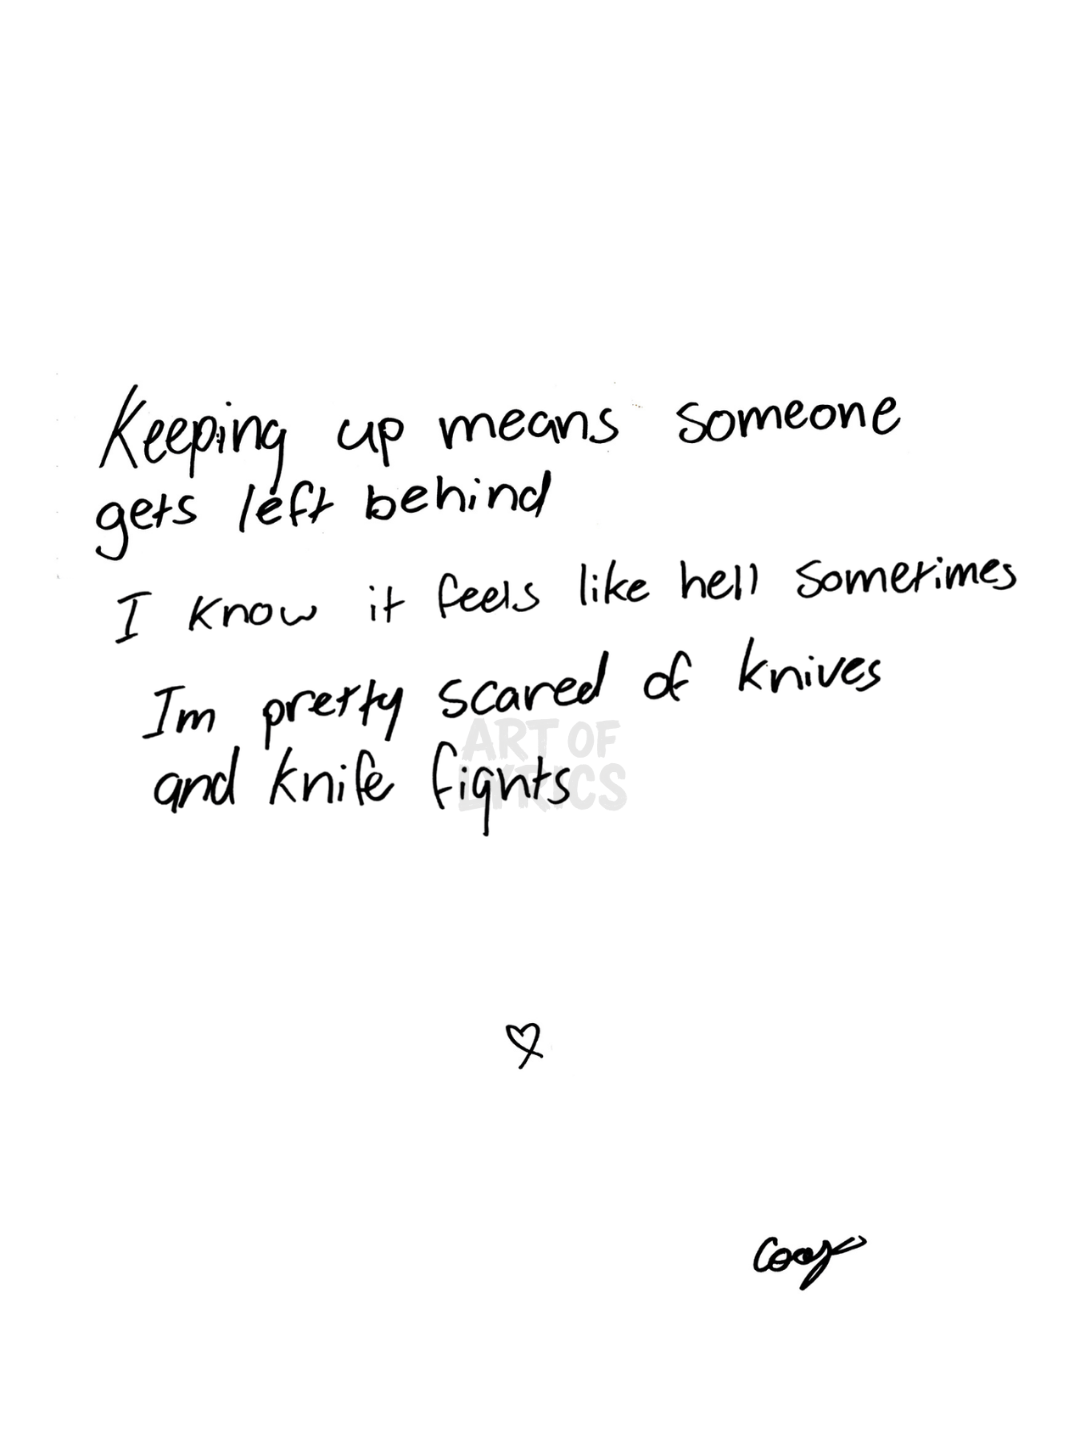 Keeping up means someone
gets left behind
I know it feels like hell sometimes
Im pretty scared of knives
and knife fights
ART OF
LYRICS